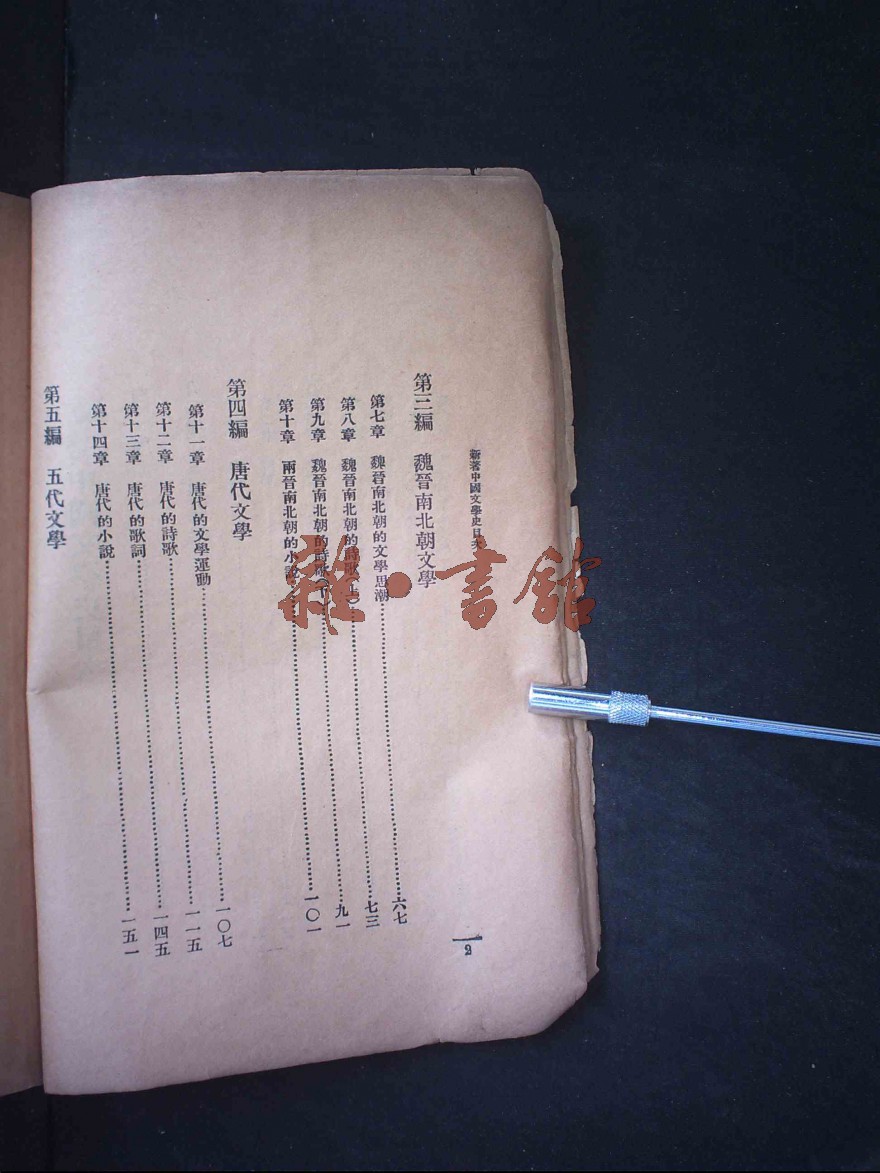 新著中國文學史目次
2
第三編 魏晉南北朝文學
第七章 魏晉南北朝的文學思潮……六七
第八章 魏晉南北朝的詩歌上……七三
第九章 魏晉南北朝的詩歌下……九一
第十章 兩晉南北朝的小說……一〇一
第四編 唐代文學
第十一章 唐代的文學運動……一〇七
第十二章 唐代的詩歌……一一五
第十三章 唐代的歌詞……一四五
第十四章 唐代的小說……一五一
第五編 五代文學
雜·書館